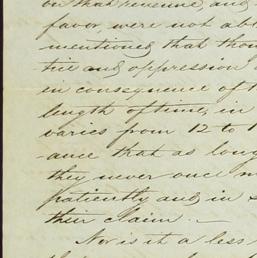 on that revenue, and
favor were not abl
mentioned that thou
tice and oppression
in consequence of t
length of time, in
varies from 12 to 1
ance that as long
they never once m
patiently and in s
their claim. —
Nor is it a less